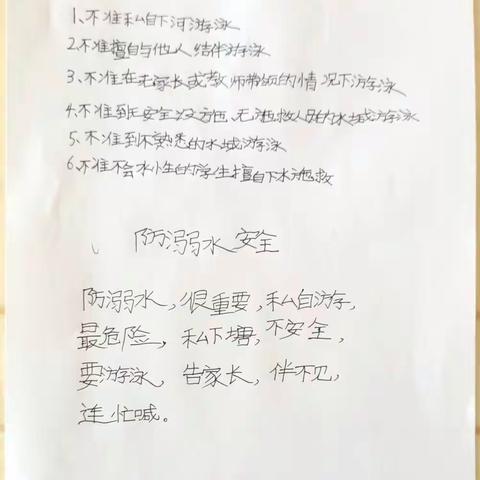 1、不准私自下河游泳
2.不准擅自与他人结伴游泳
3、不准在无家长或教师带领的情况下游泳
4.不准到无安全设施、无施救人员的水域游泳
5、不准到不熟悉的水域游泳
6、不准不会水性的学生擅自下水施救
防溺水安全
防溺水,很重要,私自游,
最危险,私下塘,不安全,
要游泳,告家长,伴不见,
连忙喊。